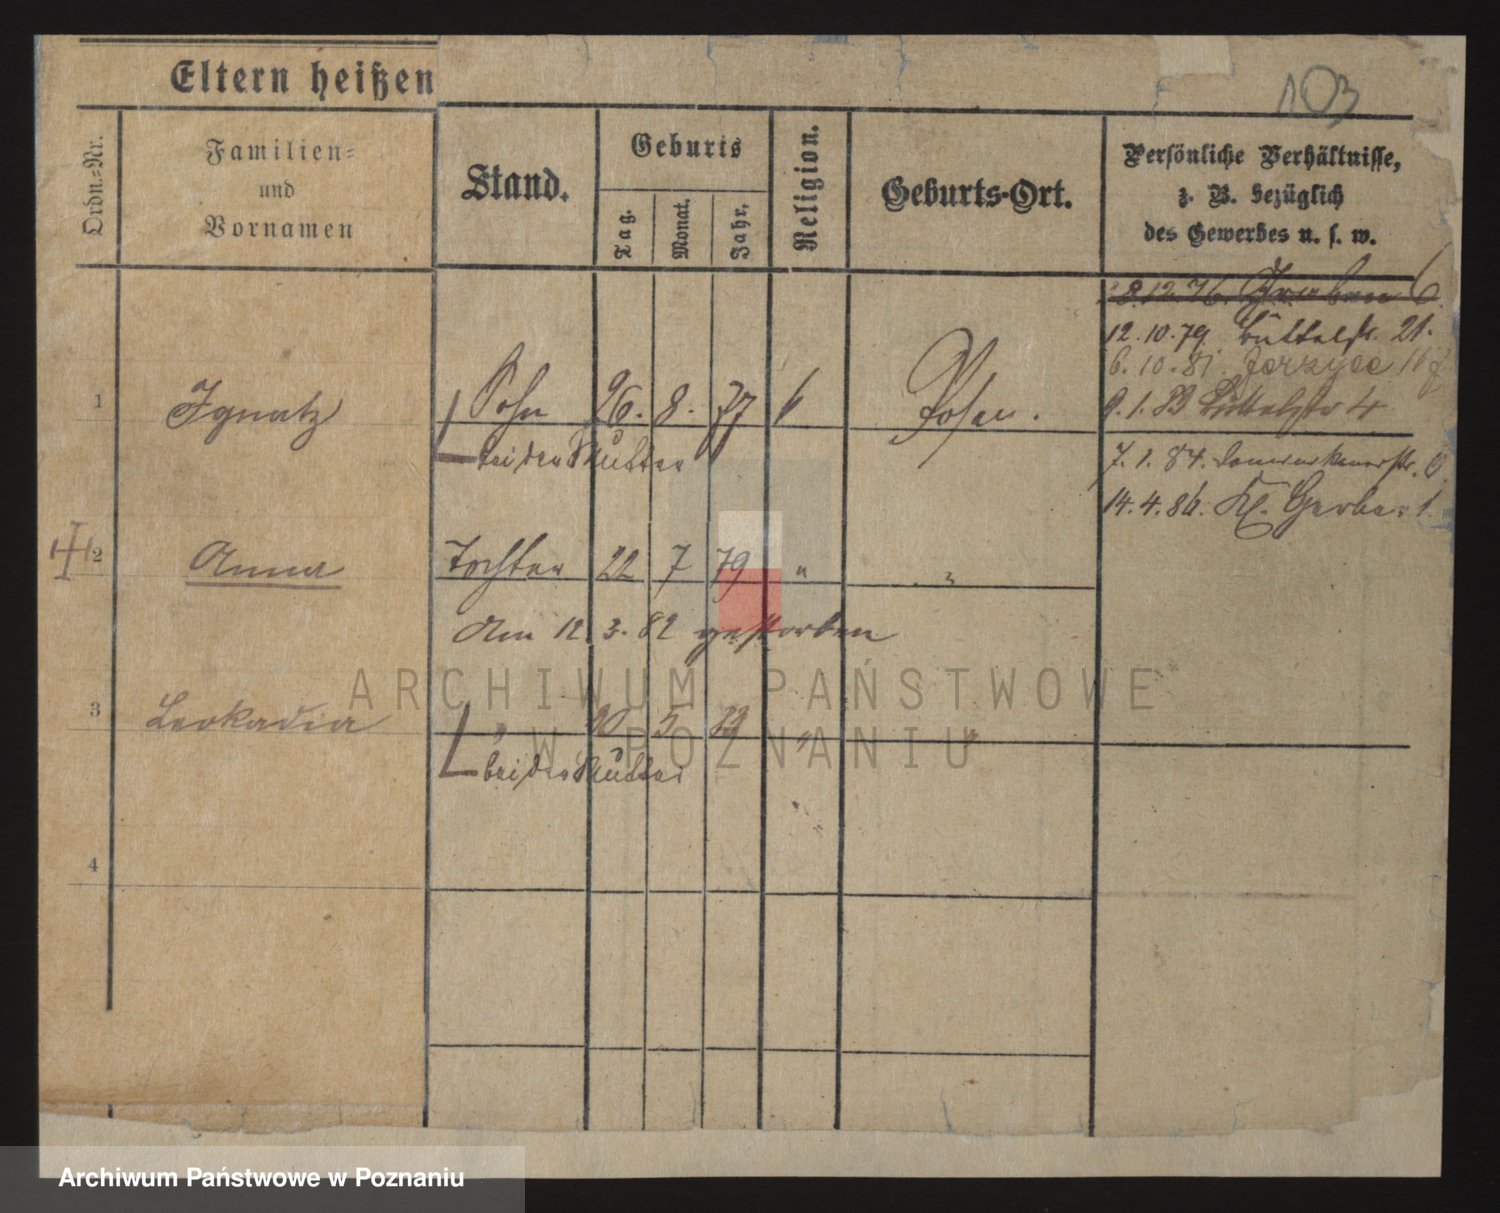 Eltern heißen
103
Ordn.=Nr.
Familien=
und
Vornamen
Stand.
Geburts
Tag.
Monat.
Jahr.
Religion.
Geburts-Ort.
Persönliche Verhältnisse,
z. B. bezüglich
des Gewerbes u. s. w.
8.12.76. Graben 6.
12.10.79. Büttelstr. 21.
6.10.81. Jerzyce
1 Ignatz Sohn 26. 8. 77 Posen.
9.1.83 Büttelstr 4
bei der Mutter
7.1.84.
14.4.86. Kl. Gerber 1.
2 Anna Tochter 22 7 79 " "
Am 12. 3. 82 gestorben
3 Leokadia " 20 5 " "
bei der Mutter
4
ARCHIWUM PAŃSTWOWE
W POZNANIU
Archiwum Państwowe w Poznaniu